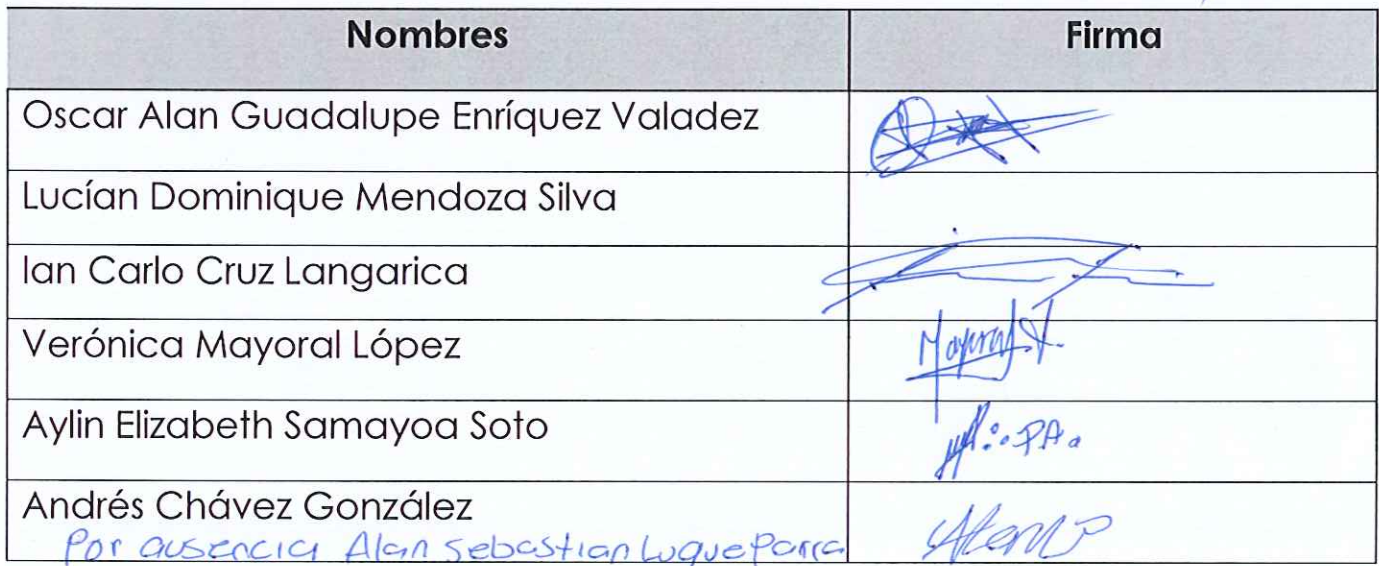 Nombres Firma
Oscar Alan Guadalupe Enríquez Valadez
Lucían Dominique Mendoza Silva
Ian Carlo Cruz Langarica
Verónica Mayoral López
Mayoral V.
Aylin Elizabeth Samayoa Soto
P.A.
Andrés Chávez González
Por ausencia Alan Sebastian Luque Parra